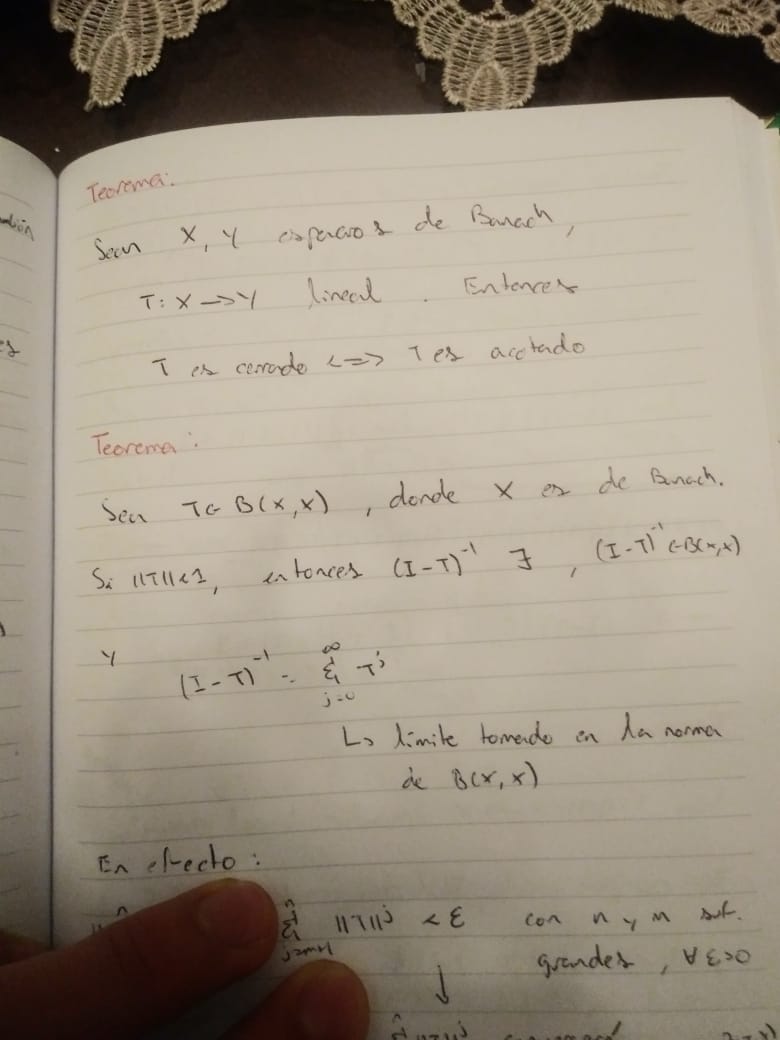 Teorema:
Sean X, Y espacios de Banach,
T: X → Y lineal. Entonces
T es cerrado <=> T es acotado
Teorema:
Sea T ∈ B(X,X), donde X es de Banach.
Si ||T|| < 1, entonces (I-T)^{-1} ∃, (I-T)^{-1} ∈ B(X,X)
Y
(I-T)^{-1} = ∑_{j=0}^{∞} T^j
↳ límite tomado en la norma
de B(X,X)
En efecto:
∑_{j=m+1}^{n} ||T||^j < ε con n y m suf.
grandes, ∀ε>0
↓